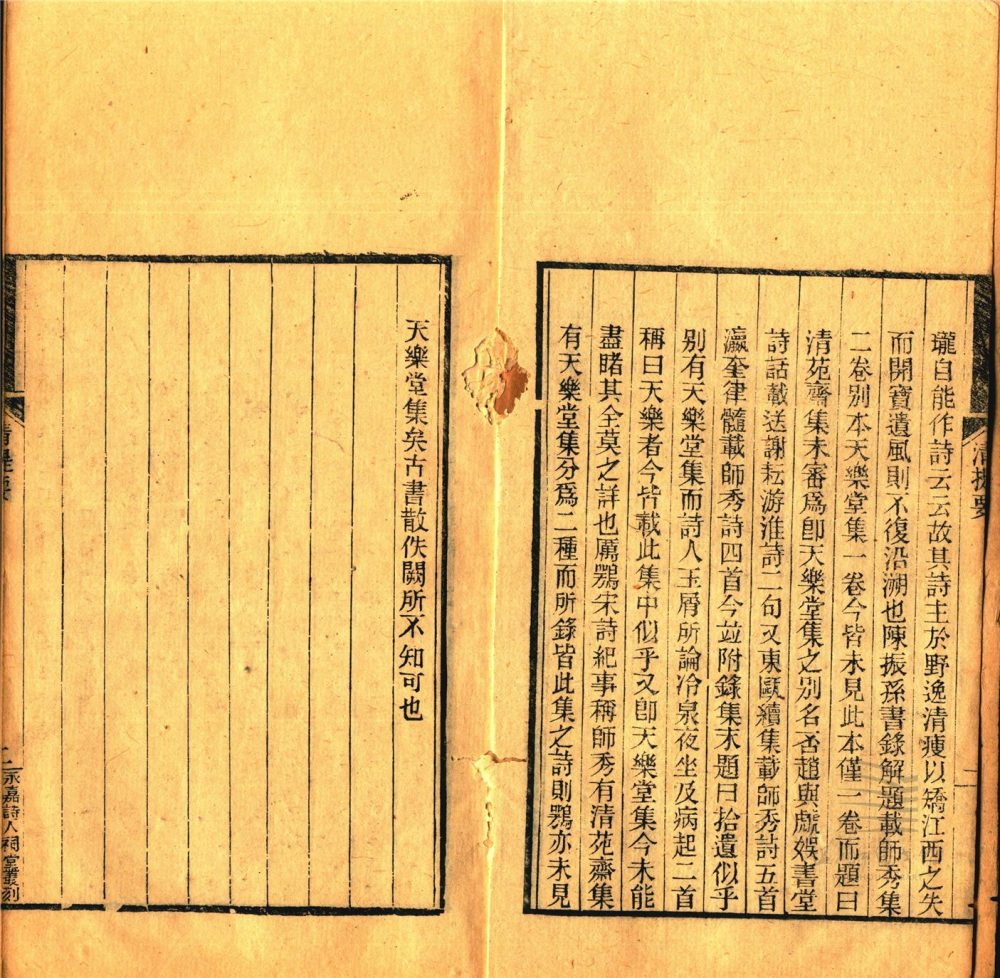 瓏自能作詩云云故其詩主於野逸清瘦以矯江西之失
而開寶遺風則不復沿溯也陳振孫書錄解題載師秀集
二卷别本天樂堂集一卷今皆未見此本僅一卷而題曰
清苑齋集未審爲卽天樂堂集之别名否趙與虤娛書堂
詩話載送謝耘游淮詩二句又東甌續集載師秀詩五首
瀛奎律髓載師秀詩四首今竝附錄集末題曰拾遺似乎
别有天樂堂集而詩人玉屑所論冷泉夜坐及病起二首
稱曰天樂者今皆載此集中似乎又卽天樂堂集今未能
盡睹其全莫之詳也厲鶚宋詩紀事稱師秀有清苑齋集
有天樂堂集分爲二種而所錄皆此集之詩則鶚亦未見
清提要
天樂堂集矣古書散佚闕所不知可也
清提要
二
永嘉詩人祠堂叢刻